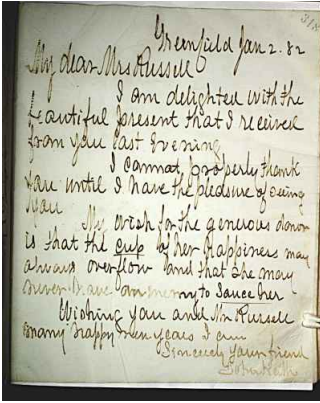 318
Greenfield Jan 2. 82
My dear Mrs Russell
I am delighted with the
beautiful present that I received
from you last Evening
I cannot properly thank
you until I have the pleasure of seeing
you
My wish for the generous donor
is that the cup of her happiness may
always overflow and that she may
never have an enemy to Sauce her
Wishing you and Mr Russell
many happy new years I am
Sincerely your friend